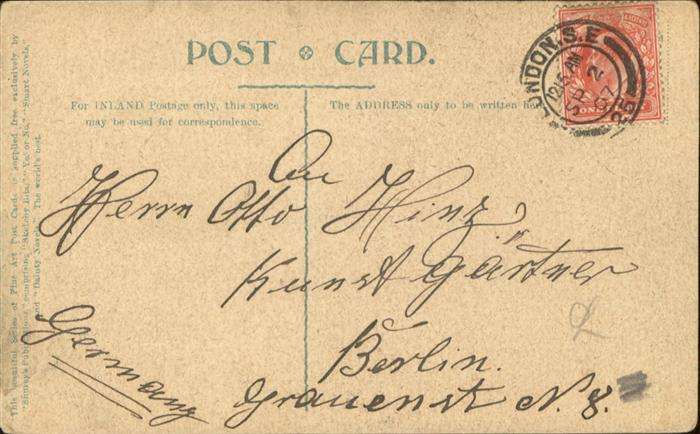 POST CARD.
For INLAND Postage only, this space
may be used for correspondence.
The ADDRESS only to be written here
LONDON. S.E
12.15 AM
SP 2
07
An
Herrn Otto Hinz
Kunst Gärtner
Berlin.
Grauenst N. 8.
Germany
This beautiful Series of Fine Art Post Cards is supplied free exclusively by
Publications comprising "Sketchy Bits," "Yes or No," "Stuart Novels,
and "Dainty Novels." The world's best.